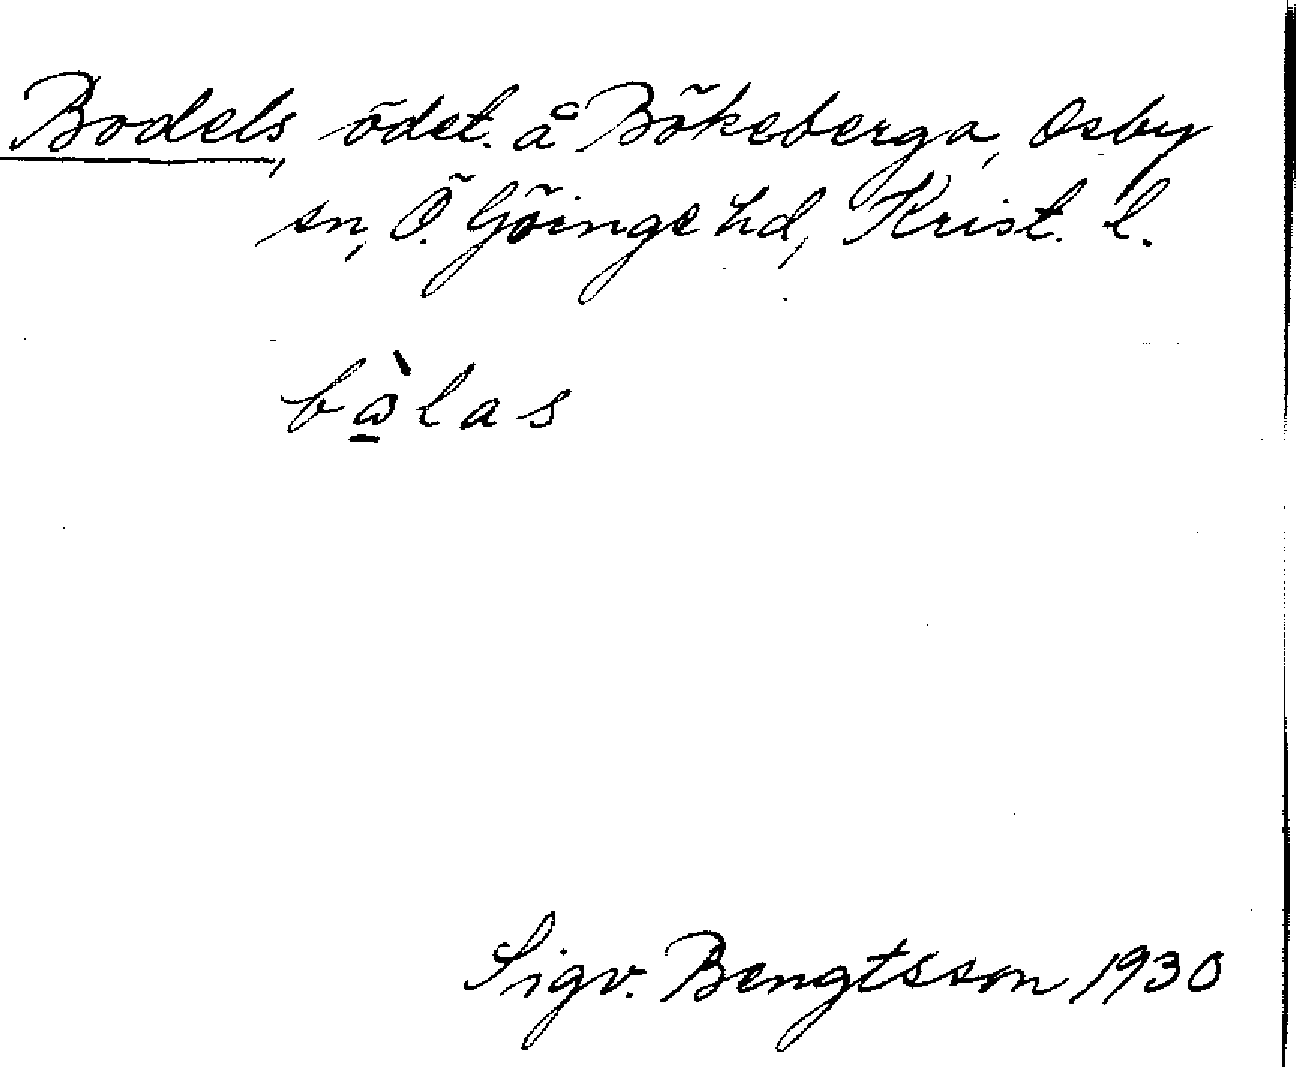 Bodels, ödet. å Bökeberga, Osby
sn, Ö. Göinge hd, Krist. l.
bὼ̲las
Sigv. Bengtsson 1930